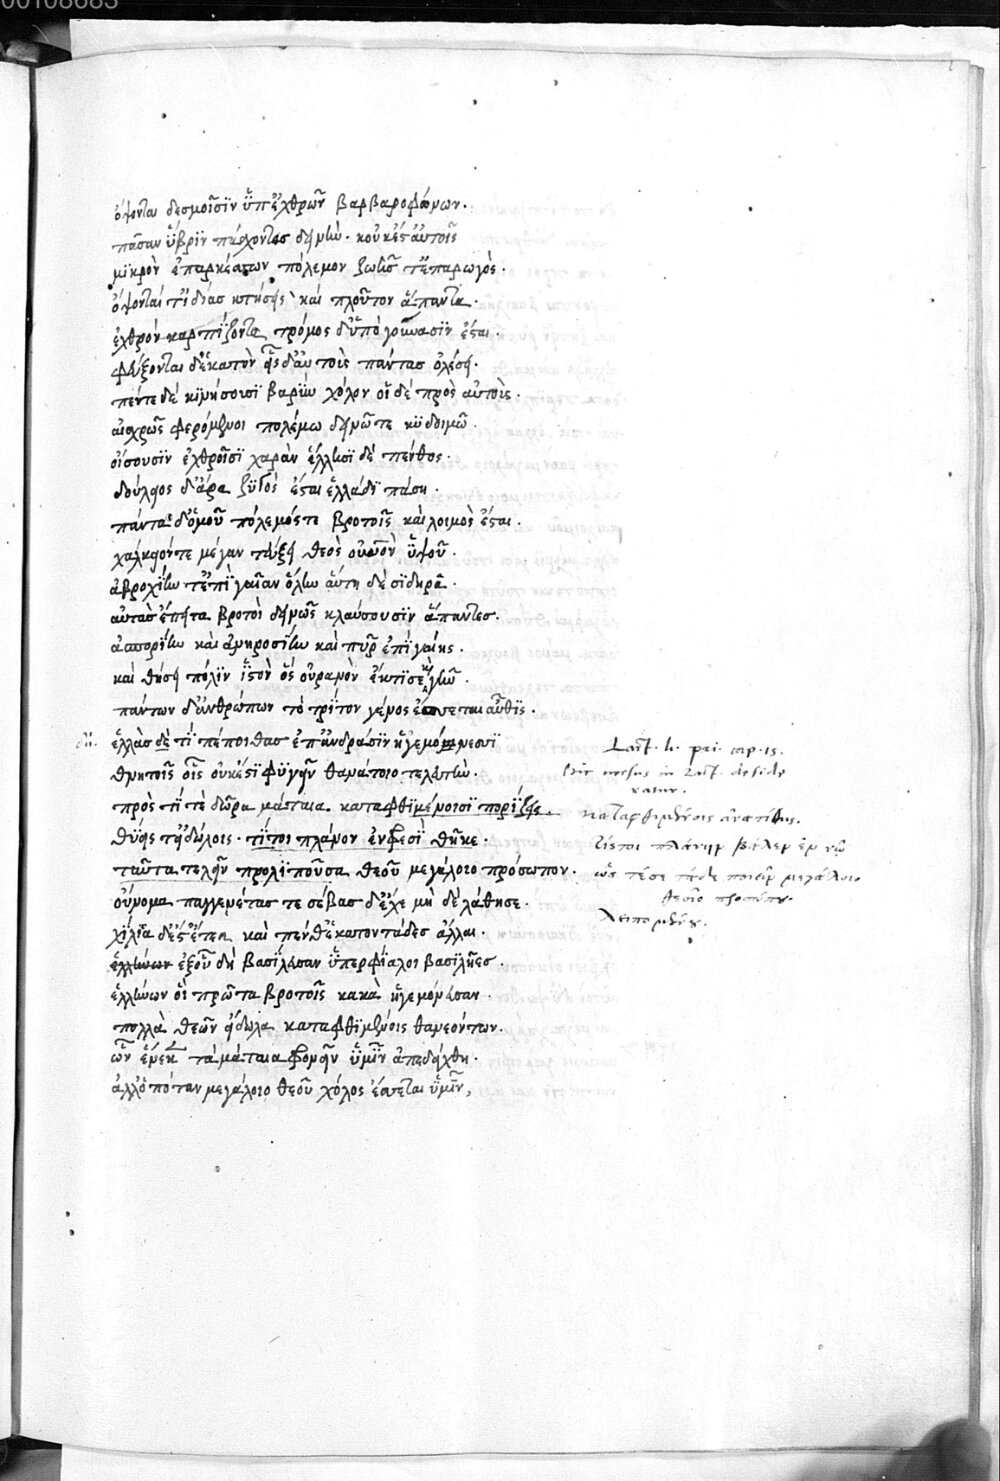 00108683
ὄψονται δεσμοῖσϊν ὕπ ἐχθρῶν βαρβαροφώνων.
πᾶσαν ὕβρϊν πάσχοντες δεινὼ. κοὐκ ἐς αὐτοῖς
μϊκρὸν ἐπαρκέσων πόλεμον ζωῆς τ ἐπαρωγὸς.
ὄψονταί τ ϊδίας κτήσεις καὶ πλοῦτον ἅπαντα.
ἐχθρὸν καρπίζοντα, τρόμος δ ὕπὸ γούνασϊν ἔσται.
φεύξονται δ ἑκατὸν εἷς δ αὐτοὺς πάντας ὀλέσει.
πέντε δὲ κϊνήσουσϊ βαρὺν χόλον οἵ δὲ πρὸς αὐτοὺς.
αἰσχρῶς φερόμενοι πολέμω δεινῶ τε κϋδοιμῶ.
οἴσουσϊν ἐχθροῖσϊ χαρὰν ἕλλησϊ δὲ πένθος.
δούλειος δ ἄρα ζϋγὸς ἔσται ἑλλάδϊ πάση.
πάντα δ ὁμοῦ πόλεμός τε βροτοῖς καὶ λοιμὸς ἔσται.
χάλκειόν τε μέγαν τεύξει θεὸς οὐρανὸν ὕψοῦ.
ἀβροχίην τ ἐπὶ γαῖαν ὅλην αὕτη δὲ σϊδηρᾶ.
αὐτὰρ ἔπειτα βροτοὶ δεινῶς κλαύσουσϊν ἅπαντες.
ἀσπορίην καὶ ἀνηροσίην καὶ πῦρ ἐπὶ γαίης.
καὶ θήσει πόλϊν ἵστον ὅς οὐρανὸν ἔκτϊσε κὴ γῆν.
πάντων δ ἀνθρώπων τὸ τρίτον γένος ἔσσεται αὖθϊς.
ἑλλὰς δὲ τί πέποιθας ἐπ ἀνδράσϊν ἡγεμόνεσσϊ
θνητοῖς οἷς οὐκ ἔστϊ φϋγεῖν θανάτοιο τελευτὼ.
πρὸς τί τὲ δῶρα μάταια καταφθϊμένοισϊ πορίζεις
θύεις τ εἰδώλοις. τίς τοι πλάνον ἐν φρεσὶ θῆκε.
ταῦτα τελεῖν προλϊποῦσα θεοῦ μεγάλοιο πρόσωπον.
οὔνομα παγγενέτας τε σέβας δ ἔχε μὴ δὲ λάθησε.
χίλϊα δ ἔστ ἔτεα καὶ πένθ ἑκατοντάδες ἄλλαι.
ἑλλήνων ἐξοῦ δὴ βασίλευσαν ὕπερφίαλοι βασϊλῆες.
ἑλλήνων οἵ πρῶτα βροτοῖς κακὰ ἡγεμόνευσαν.
πολλὰ θεῶν εἴδωλα καταφθϊμένοις θανεόντων.
ὧν ἕνεκεν τὰ μάταια φρονεῖν ὕμῖν ἀπεδείχθη.
ἀλλ ὁπόταν μεγάλοιο θεοῦ χόλος ἔσσεται ὕμῖν,
Lact. li. pri. cap. 15.
hic versus in Lact. deside
ratur.
καταφθιμένοις ἀνάπτεις.
τίς τοι πλάνην βάλεν ἐν νῶ
ὥς τέσε τάδε ποιεῖν μεγάλοιο
θεοῖο προσώπου.
λειπομένου.